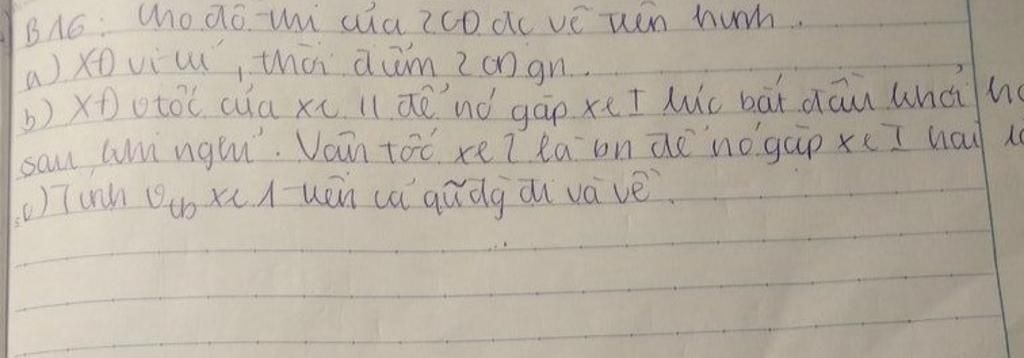 B16: Cho đồ thị của 2 CĐ đc vẽ trên hình.
a) XĐ vị trí, thời điểm 2 CĐ gn.
b) XĐ v tốc của xe II để nó gặp xe I lúc bắt đầu khởi h
sau khi nghỉ. Vận tốc xe 2 là bn để nó gặp xe I hai l
c) Tính vtb xe 1 trên cả qãdg đi và về.